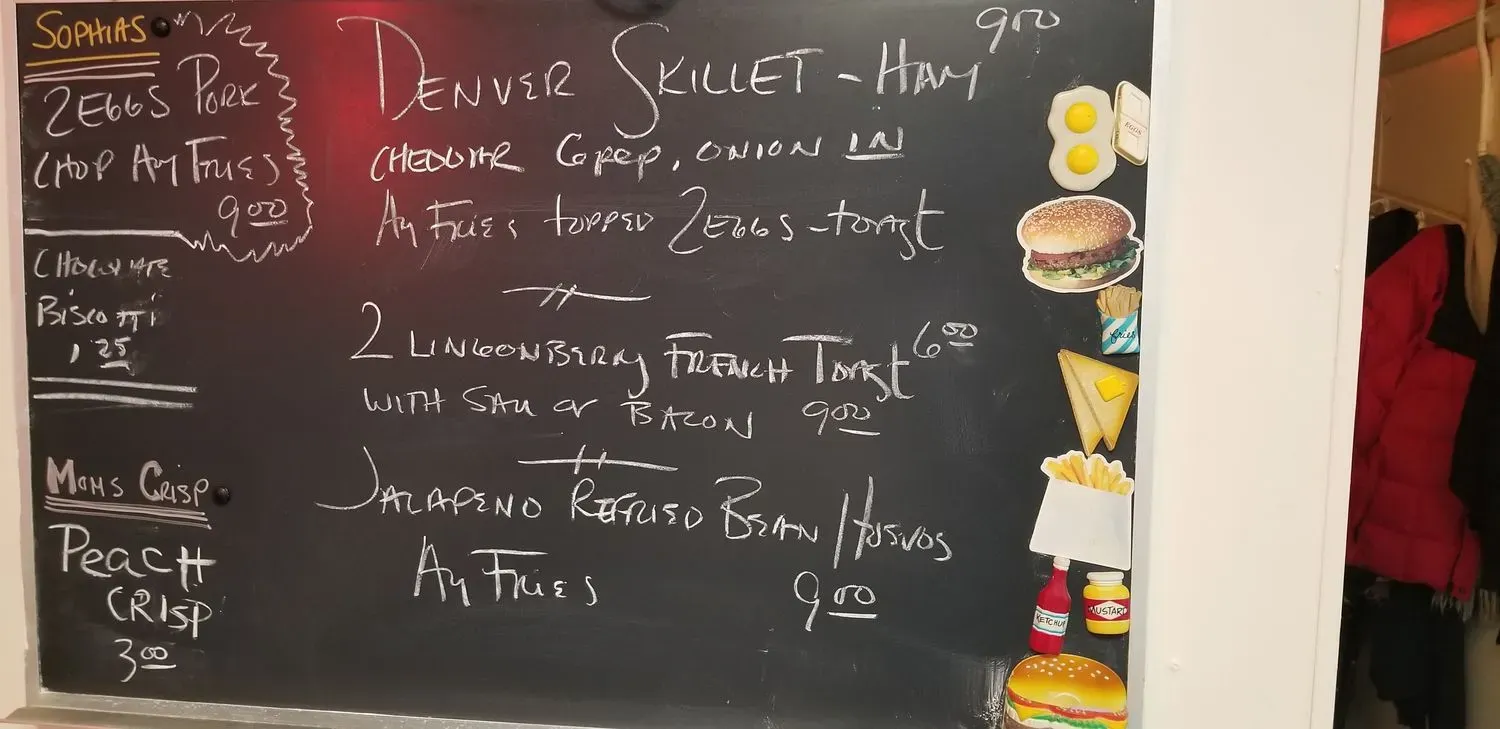 SOPHIAS
2 EGGS PORK
CHOP AM FRIES
9.00
CHOCOLATE
BISCOTTI
1.25
MOMS CRISP
PEACH
CRISP
3.00
DENVER SKILLET - HAM 9.00
CHEDDAR G PEP, ONION IN
AM FRIES TOPPED 2 EGGS - TOAST
2 LINGONBERRY FRENCH TOAST 6.00
WITH SAU OR BACON 9.00
JALAPENO REFRIED BEAN / HUEVOS
AM FRIES 9.00
EGGS
fries
KETCHUP
MUSTARD